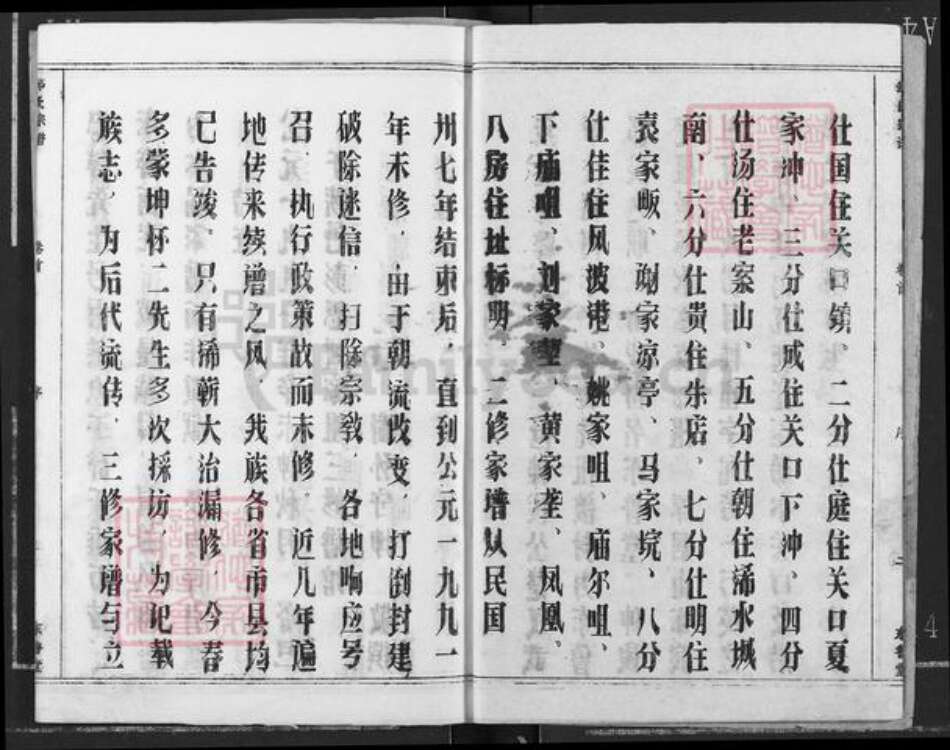 仕国住关口镇、二分仕庭住关口夏
家冲、三分仕成住关口下冲、四分
仕汤住老案山、五分仕朝住浠水城
南、六分仕贵住朱店、七分仕明住
袁家畈、谢家凉亭、马家垸、八分
仕佳住凤波港、姚家咀、庙尔咀、
下庙咀、刘家墅、黄家垄、凤凰、
八房住址标明、二修家谱从民国
卅七年结束后，直到公元一九九一
年未修，由于朝流改变，打倒封建
破除迷信，扫除宗教，各地响应号
召，执行政策故而未修，近几年遍
地传来续谱之风，我族各省市县均
已告竣、只有浠蕲大治漏修，今春
多蒙坤怀二先生多次採访，为记载
族志，为后代流传、三修家谱与立